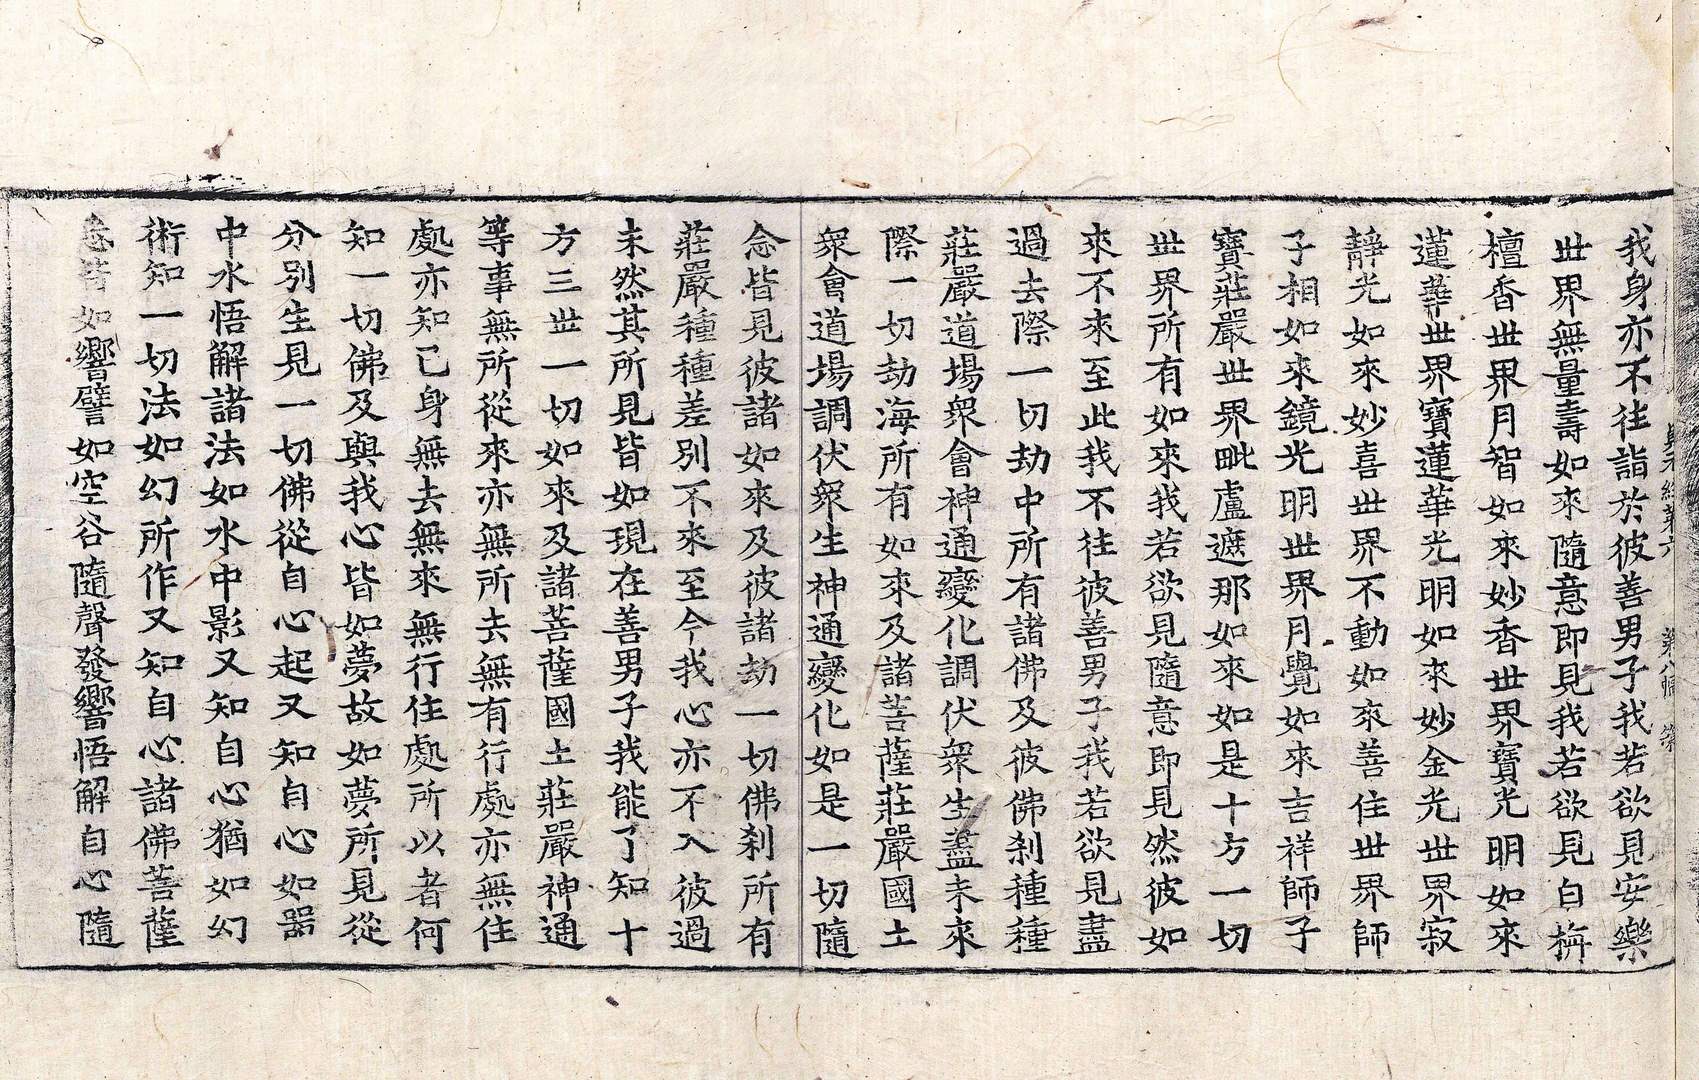 我身亦不往詣於彼善男子我若欲見安樂
世界無量壽如來隨意即見我若欲見白栴
檀香世界月智如來妙香世界寶光明如來
蓮華世界寶蓮華光明如來妙金光世界寂
靜光如來妙喜世界不動如來善住世界師
子相如來鏡光明世界月覺如來吉祥師子
寶莊嚴世界毗盧遮那如來如是十方一切
世界所有如來我若欲見隨意即見然彼如
來不來至此我不往彼善男子我若欲見盡
過去際一切劫中所有諸佛及彼佛刹種種
莊嚴道場衆會神通變化調伏衆生盡未來
際一切劫海所有如來及諸菩薩莊嚴國土
衆會道場調伏衆生神通變化如是一切隨
念皆見彼諸如來及彼諸劫一切佛刹所有
莊嚴種種差別不來至今我心亦不入彼過
未然其所見皆如現在善男子我能了知十
方三世一切如來及諸菩薩國土莊嚴神通
等事無所從來亦無所去無有行處亦無住
處亦知已身無去無來無行住處所以者何
知一切佛及與我心皆如夢故如夢所見從
分別生見一切佛從自心起又知自心如器
中水悟解諸法如水中影又知自心猶如幻
術知一切法如幻所作又知自心諸佛菩薩
悉皆如響譬如空谷隨聲發響悟解自心隨